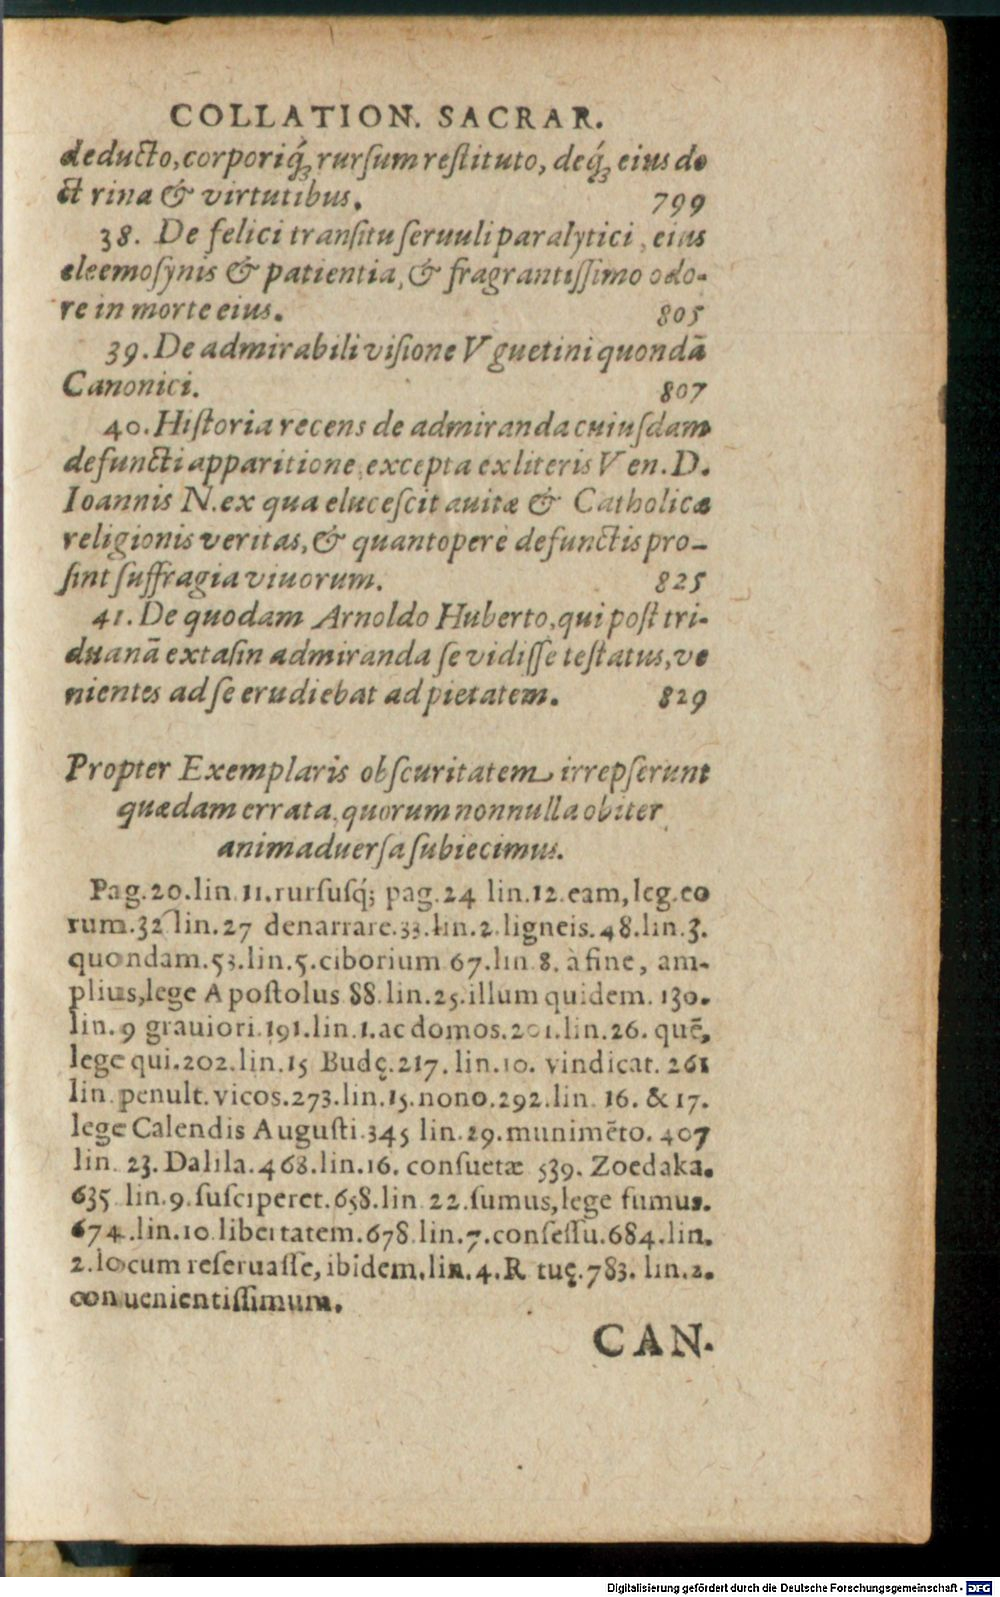 COLLATION. SACRAR.
deducto, corporiq́ꝫ rursum restituto, deq́ꝫ eius do
ctrina & virtutibus. 799
38. De felici transitu seruuli paralytici, eius
eleemosynis & patientia, & fragrantissimo odo-
re in morte eius. 805
39. De admirabili visione Vguetini quondã
Canonici. 807
40. Historia recens de admiranda cuiusdam
defuncti apparitione, excepta ex literis Ven. D.
Ioannis N. ex qua elucescit auitæ & Catholicæ
religionis veritas, & quantoperè defunctis pro-
sint suffragia viuorum. 825
41. De quodam Arnoldo Huberto, qui post tri-
duanã extasin admiranda se vidisse testatus, ve
nientes ad se erudiebat ad pietatem. 829
Propter Exemplaris obscuritatem irrepserunt
quædam errata, quorum nonnulla obiter
animaduersa subiecimus.
Pag. 20. lin. 11. rursusq́; pag. 24 lin. 12. eam, leg. eo
rum. 32 lin. 27 denarrare. 33. lin. 2. ligneis. 48. lin. 3.
quondam. 53. lin. 5. ciborium 67. lin 8. à fine, am-
plius, lege Apostolus 88. lin. 25. illum quidem. 130.
lin. 9 grauiori. 191. lin. 1. ac domos. 201. lin. 26. quē,
lege qui. 202. lin. 15 Budę. 217. lin. 10. vindicat. 261
lin. penult. vicos. 273. lin. 15. nono. 292. lin. 16. & 17.
lege Calendis Augusti. 345 lin. 29. munimēto. 407
lin. 23. Dalila. 468. lin. 16. consuetæ 539. Zoedaka.
635 lin. 9. susciperet. 658. lin 22. sumus, lege fumus.
674. lin. 10 libertatem. 678 lin. 7. consessu. 684. lin.
2. locum reseruasse, ibidem, lin. 4. R tuę. 783. lin. 2.
conuenientissimum.
CAN.
Digitalisierung gefördert durch die Deutsche Forschungsgemeinschaft - DFG